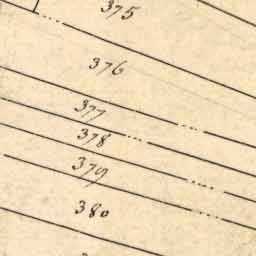 375
376
377
378
379
380